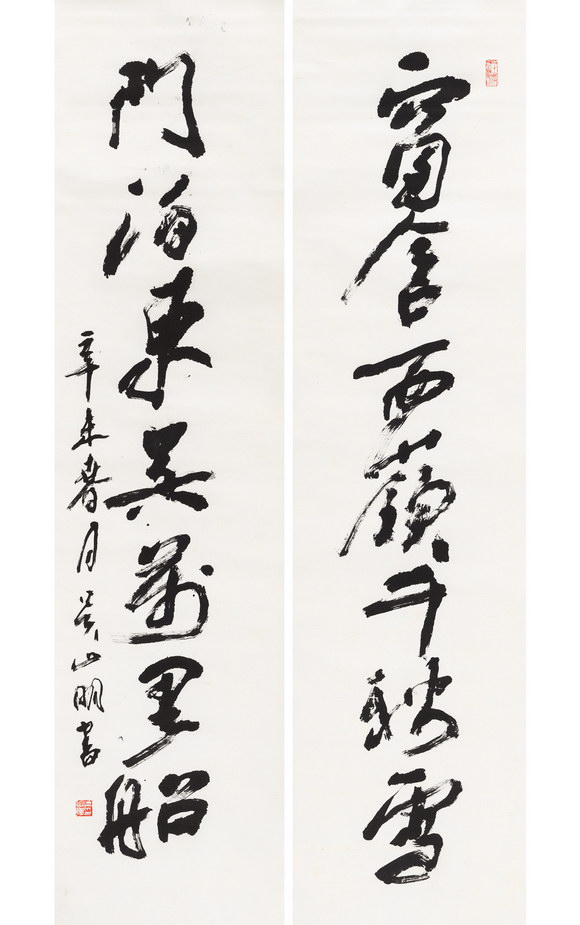 窗含西嶺千秋雪
門泊東吴萬里船
辛未春月吴山明書